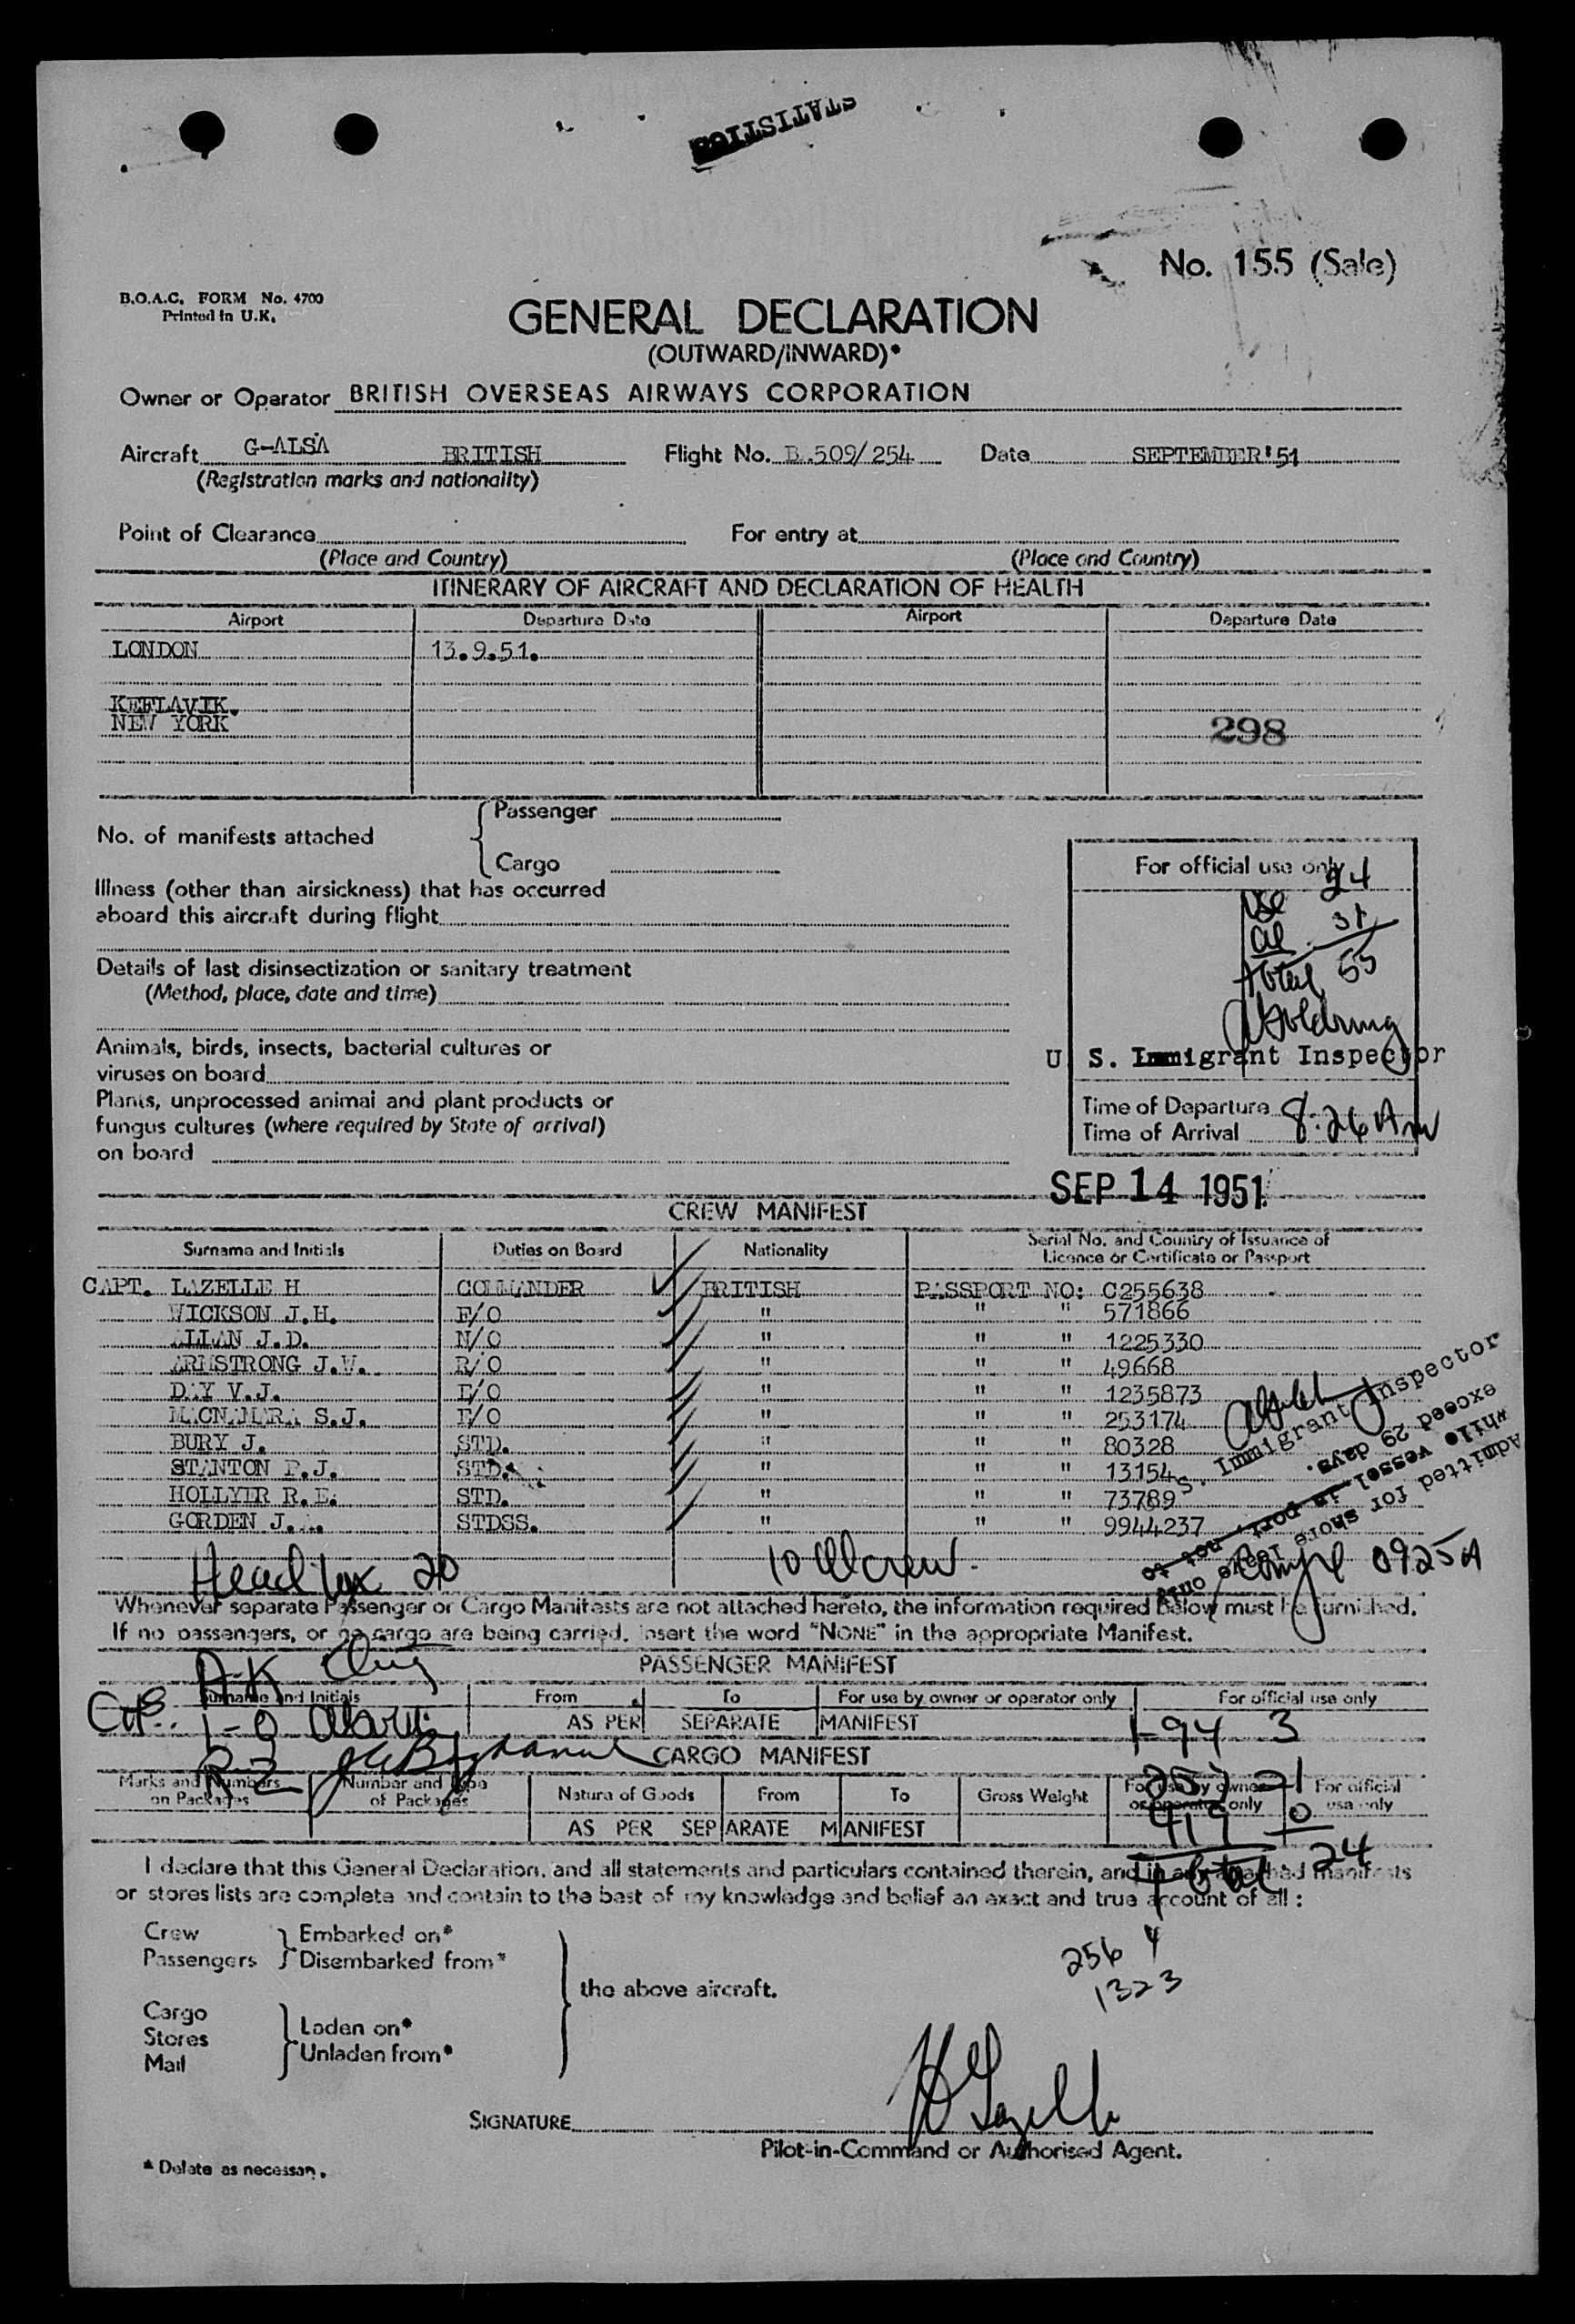 STATISTICS
No. 155 (Sale)
B.O.A.C. FORM No. 4700
Printed in U.K.
GENERAL DECLARATION
(OUTWARD/INWARD)*
Owner or Operator BRITISH OVERSEAS AIRWAYS CORPORATION
Aircraft G-ALSA BRITISH Flight No. B.509/254 Date SEPTEMBER'51
(Registration marks and nationality)
Point of Clearance For entry at
(Place and Country) (Place and Country)
ITINERARY OF AIRCRAFT AND DECLARATION OF HEALTH
Airport Departure Date Airport Departure Date
LONDON 13.9.51.
KEFLAVIK.
NEW YORK 298
No. of manifests attached
Passenger
Cargo
Illness (other than airsickness) that has occurred
aboard this aircraft during flight
Details of last disinsectization or sanitary treatment
(Method, place, date and time)
Animals, birds, insects, bacterial cultures or
viruses on board
Plants, unprocessed animal and plant products or
fungus cultures (where required by State of arrival)
on board
For official use only
USC 24
al 31
total 55
U. S. Immigrant Inspector
Time of Departure
Time of Arrival 8:26 AM
SEP 14 1951
CREW MANIFEST
Surname and Initials Duties on Board Nationality Serial No. and Country of Issuance of
Licence or Certificate or Passport
CAPT. LAZELLE H COMMANDER BRITISH PASSPORT NO: C255638
WICKSON J.H. F/O " " " 571866
ALLAN J.D. N/O " " " 1225330
ARMSTRONG J.W. R/O " " " 49668
DAY V.J. E/O " " " 1235873
MACNAMARA S.J. E/O " " " 253174
BURY J. STD. " " " 80328
STANTON P.J. STD. " " " 13154
HOLLYER R.E. STD. " " " 73789
GORDEN J.A. STDSS. " " " 9944237
U. S. Immigrant Inspector
Admitted for shore leave only
while vessel in port, not to
exceed 29 days.
Head tax 20 10 al crew. 0925A
Whenever separate Passenger or Cargo Manifests are not attached hereto, the information required below must be furnished.
If no passengers, or no cargo are being carried, insert the word "NONE" in the appropriate Manifest.
PASSENGER MANIFEST
Surname and Initials From To For use by owner or operator only For official use only
AS PER SEPARATE MANIFEST
1-94 3
CARGO MANIFEST
Marks and Numbers
on Packages
Number and Type
of Packages
Nature of Goods From To Gross Weight For use by owner
or operator only
For official
use only
257 21
419 0
AS PER SEPARATE MANIFEST
total 24
I declare that this General Declaration, and all statements and particulars contained therein, and in any attached manifests
or stores lists are complete and contain to the best of my knowledge and belief an exact and true account of all :
Crew
Passengers
Embarked on*
Disembarked from*
Cargo
Stores
Mail
Laden on*
Unladen from*
the above aircraft.
256 4
1323
SIGNATURE H Lazelle
Pilot-in-Command or Authorised Agent.
* Delete as necessary.